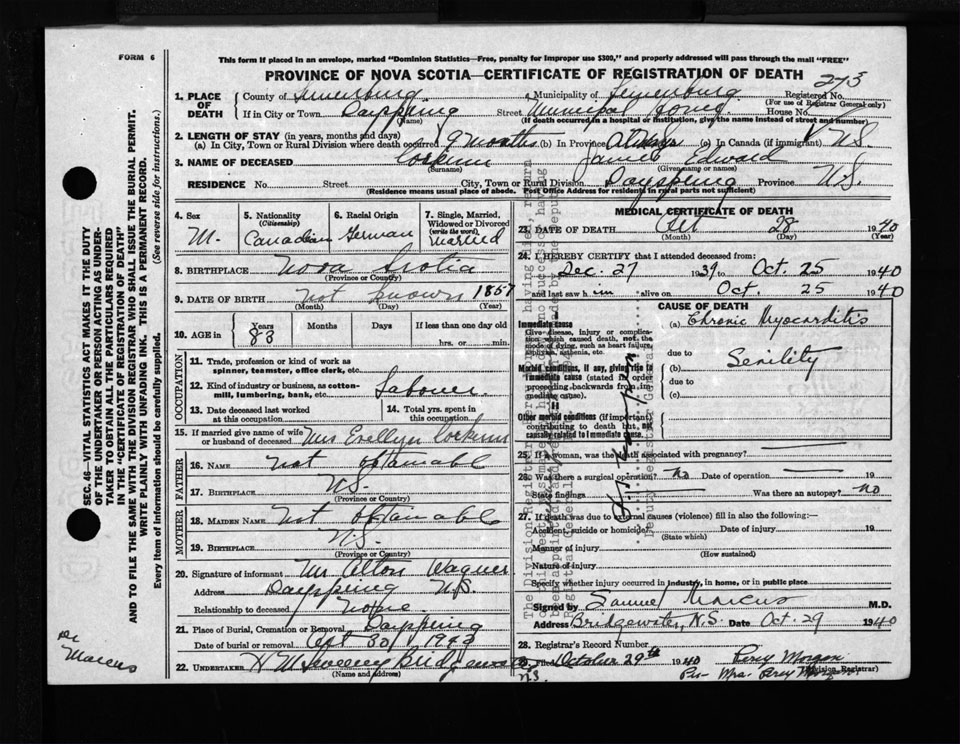 FORM 6
This form if placed in an envelope, marked "Dominion Statistics—Free, penalty for improper use $300," and properly addressed will pass through the mail "FREE"
PROVINCE OF NOVA SCOTIA—CERTIFICATE OF REGISTRATION OF DEATH
1. PLACE OF DEATH County of Lunenburg Municipality of Lunenburg Registered No. 273
(For use of Registrar General only)
If in City or Town Dayspring Street Municipal Home House No.
(Name) (If death occurred in a hospital or institution, give the name instead of street and number)
2. LENGTH OF STAY (in years, months and days)
(a) In City, Town or Rural Division where death occurred 9 months (b) In Province always (c) In Canada (if immigrant) N.S.
3. NAME OF DECEASED Corkum James Edward
(Surname) (Given name or names)
RESIDENCE No. Street City, Town or Rural Division Dayspring Province N.S.
(Residence means usual place of abode. Post Office Address for residents in rural parts not sufficient)
4. Sex M.
5. Nationality (Citizenship) Canadian
6. Racial Origin German
7. Single, Married, Widowed or Divorced (write the word) Married
8. BIRTHPLACE Nova Scotia
(Province or Country)
9. DATE OF BIRTH not known 1857
(Month) (Day) (Year)
10. AGE in Years 83 Months Days If less than one day old
hrs. or min.
OCCUPATION
11. Trade, profession or kind of work as spinner, teamster, office clerk, etc.
12. Kind of industry or business, as cotton-mill, lumbering, bank, etc. Labourer
13. Date deceased last worked at this occupation
14. Total yrs. spent in this occupation
15. If married give name of wife or husband of deceased Mrs Evellyn Corkum
FATHER
16. NAME not obtainabl
17. BIRTHPLACE N.S.
(Province or Country)
MOTHER
18. MAIDEN NAME not obtainable
19. BIRTHPLACE N.S.
(Province or Country)
20. Signature of informant Mr Alton Wagner
Address Dayspring N.S.
Relationship to deceased None
21. Place of Burial, Cremation or Removal Dayspring
Date of burial or removal Oct 30 1940
22. UNDERTAKER H M Sweeny Bridgewater
N.S.
(Name and Address)
MEDICAL CERTIFICATE OF DEATH
23. DATE OF DEATH Oct 28 1940
(Month) (Day) (Year)
24. I HEREBY CERTIFY that I attended deceased from:
Dec. 27 1939 to Oct. 25 1940
and last saw him alive on Oct. 25 1940
CAUSE OF DEATH
Immediate cause
Give disease, injury or complication which caused death, not the mode of dying, such as heart failure, asphyxia, asthenia, etc.
(a) Chronic Myocarditis
due to
Morbid conditions, if any, giving rise to immediate cause (stated in order proceeding backwards from immediate cause).
(b) Senility
due to
(c)
Other morbid conditions (if important) contributing to death but not causally related to immediate cause.
25. If a woman, was the death associated with pregnancy?
26. Was there a surgical operation? No Date of operation 19
State findings Was there an autopsy? No
27. If death was due to external causes (violence) fill in also the following:—
Accident, suicide or homicide? Date of injury 19
(State which)
Manner of injury
(How sustained)
Nature of injury
Specify whether injury occurred in industry, in home, or in public place
Signed by Samuel Marcus M.D.
Address Bridgewater, N.S. Date Oct. 29 1940
28. Registrar's Record Number
29. Filed October 29th 1940 Percy Morgan
(Division Registrar)
Per Mrs. Percy Morgan
SEC. 46—VITAL STATISTICS ACT MAKES IT THE DUTY
OF THE UNDERTAKER OR PERSON ACTING AS UNDER-
TAKER TO OBTAIN ALL THE PARTICULARS REQUIRED
IN THE "CERTIFICATE OF REGISTRATION OF DEATH"
AND TO FILE THE SAME WITH THE DIVISION REGISTRAR WHO SHALL ISSUE THE BURIAL PERMIT.
WRITE PLAINLY WITH UNFADING INK. THIS IS A PERMANENT RECORD.
Every item of information should be carefully supplied. (See reverse side for instructions.)
Dr Marcus